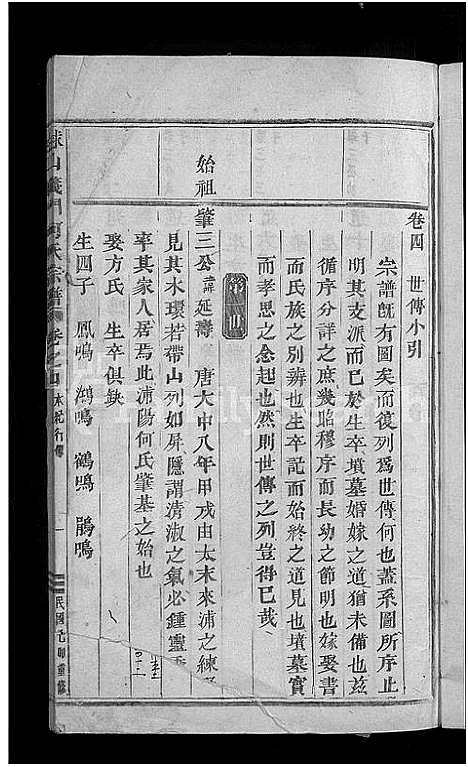 卷四 世傳小引
宗譜旣有圖矣而復列爲世傳何也蓋系圖所序止
明其支派而已於生卒墳墓婚嫁之道猶未備也兹
循序分詳之庶幾昭穆序而長幼之節明也嫁娶書
而氏族之別辨也生卒記而始終之道見也墳墓實
而孝思之念起也然則世傳之列豈得已哉
始祖 肇三公 諱延灣 唐大中八年甲戌由太末來浦之練
見其木環若帶山列如屏隱謂清淑之氣必鍾靈
率其家人居焉此浦陽何氏肇基之始也
娶方氏 生卒俱缺
生四子 鳳鳴 鴻鳴 鶴鳴 鵑鳴
山義門何氏宗譜 卷之四 行傳 一 民國 重修